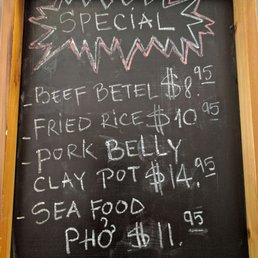 SPECIAL
-BEEF BETEL $8.95
-FRIED RICE $10.95
-PORK BELLY
CLAY POT $14.95
-SEA FOOD
PHỞ $11.95